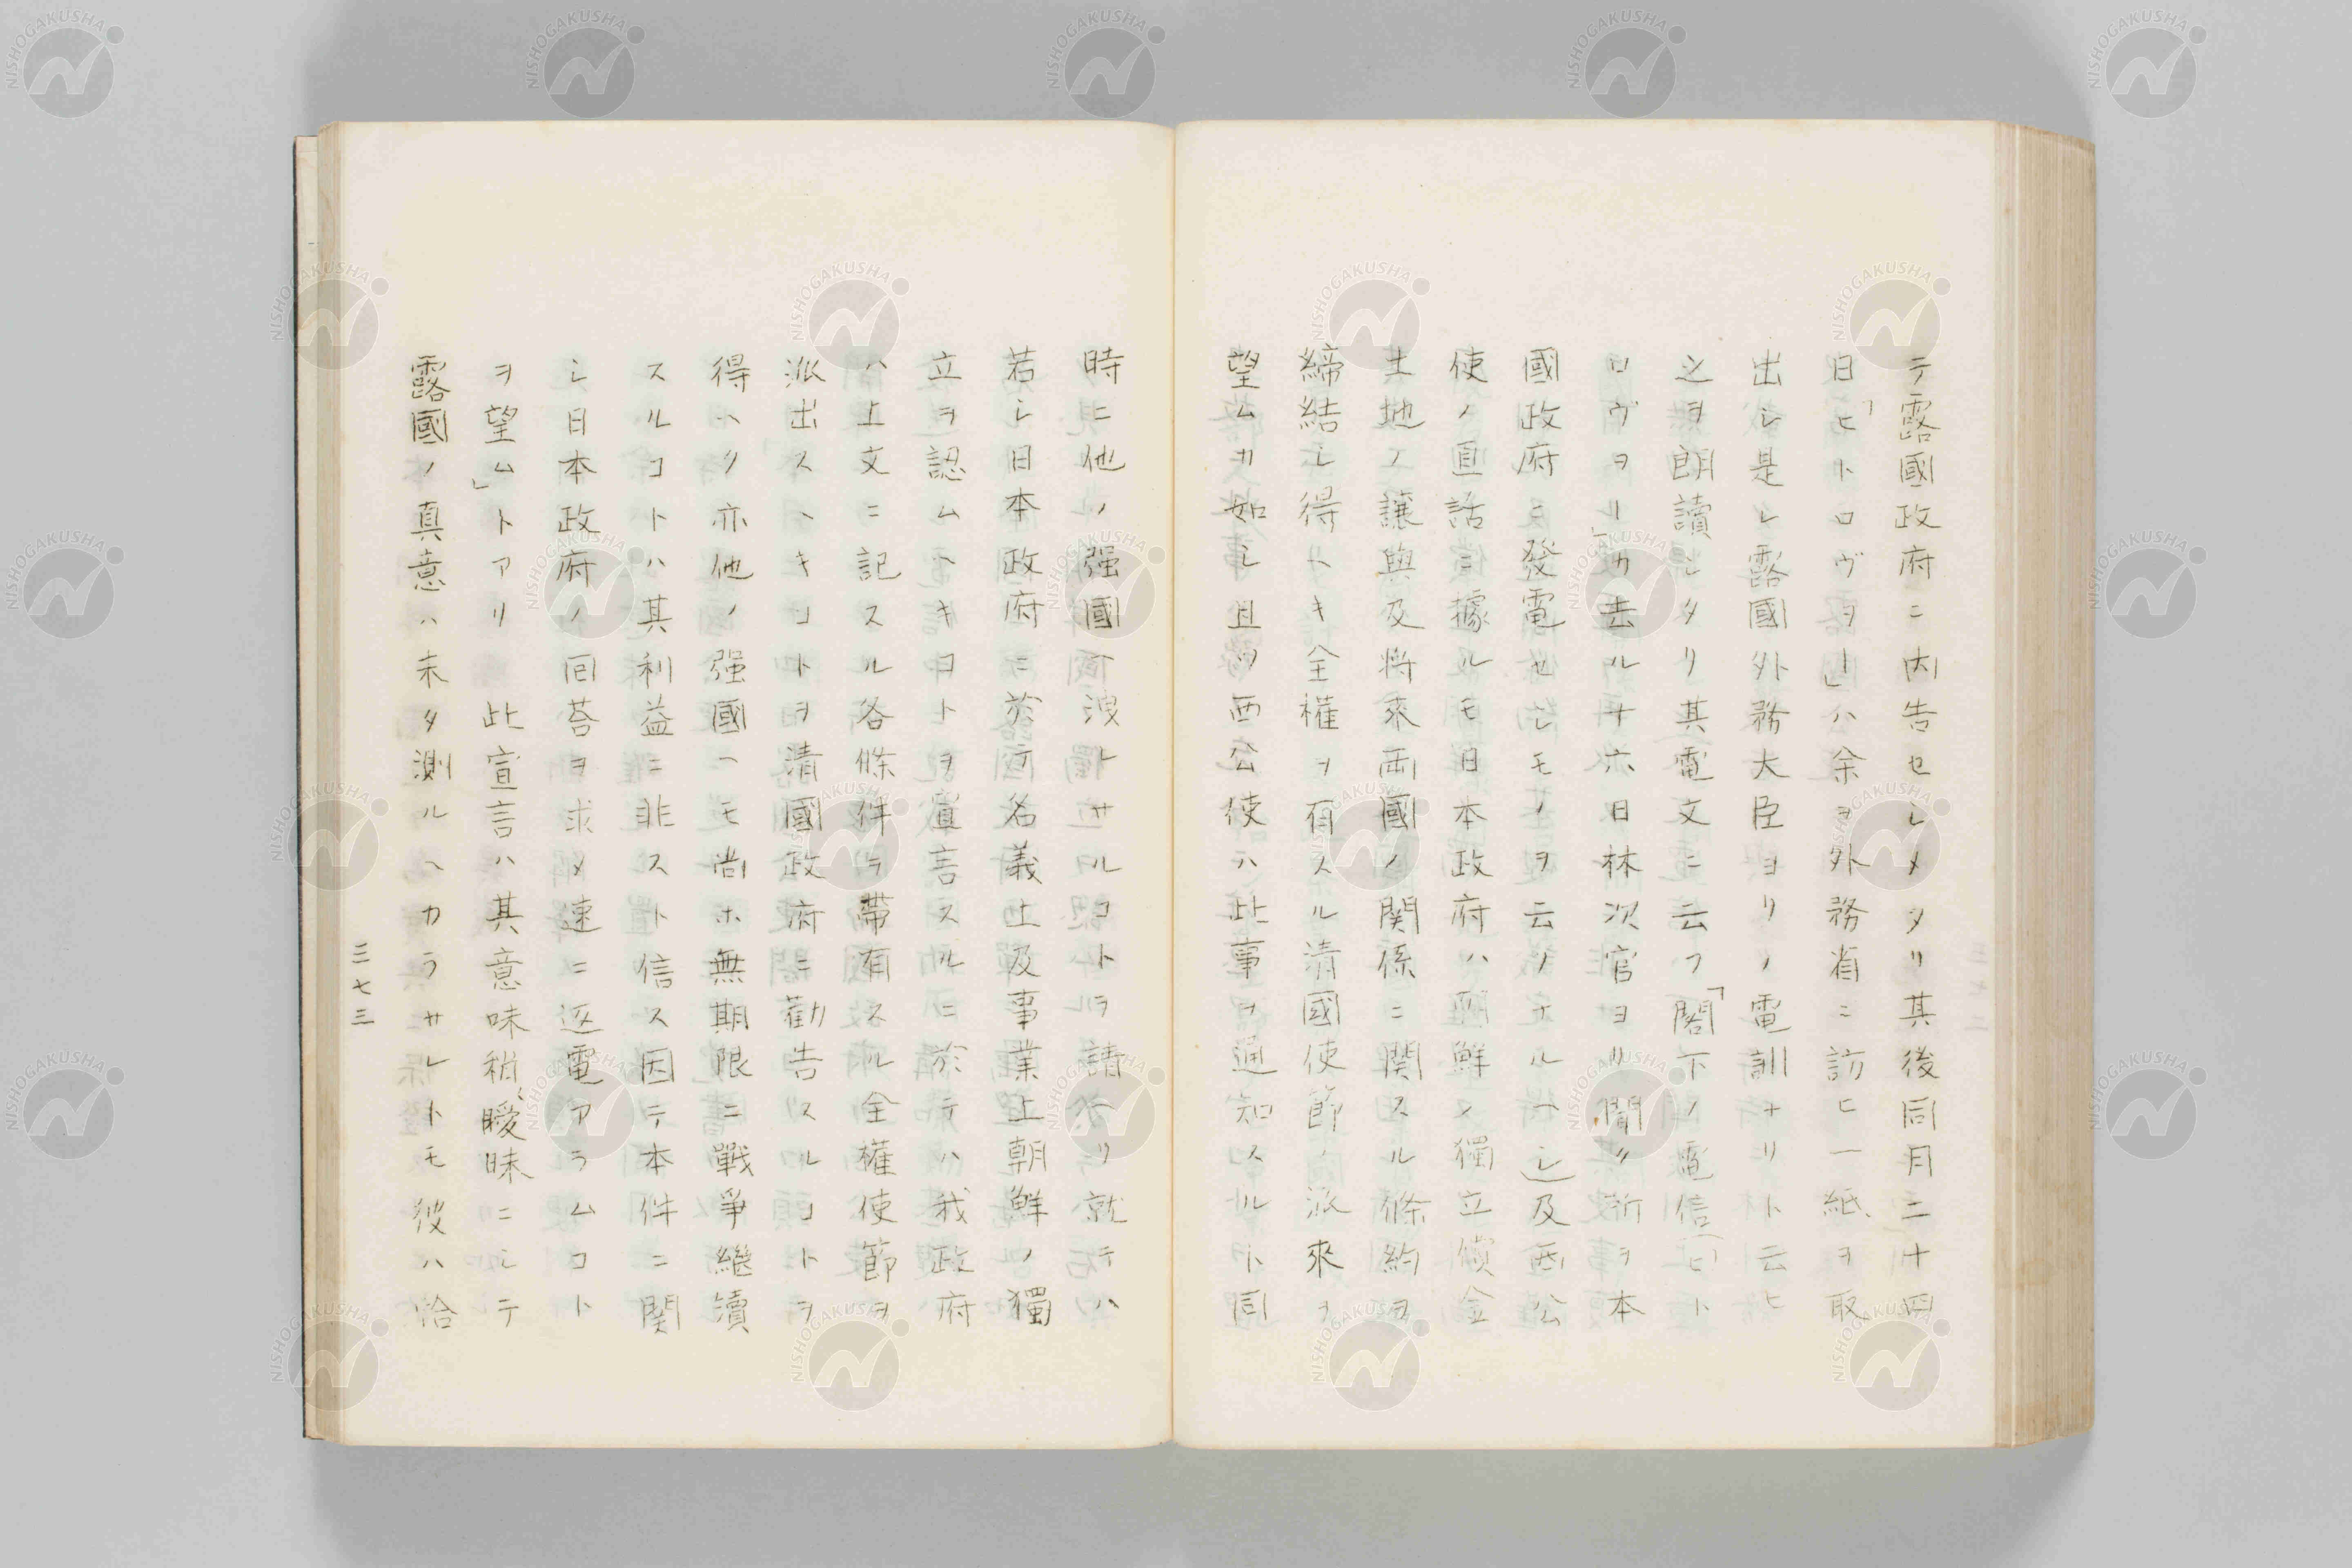 テ露國政府ニ内告セシメタリ其後同月二十四
日「ヒトロヴヲー」ハ余ヲ外務省ニ訪ヒ一紙ヲ取
出シ是レ露國外務大臣ヨリノ電訓ナリト云ヒ
之ヲ朗讀シタリ其電文ニ云フ「閣下ノ電信(ヒト
ロヴヲー」カ去ル廿六日林次官ヨリ聞ク所ヲ本
國政府ニ發電セシモノヲ云ノナルヘシ)及西公
使ノ直話ニ據ルモ日本政府ハ朝鮮ノ獨立償金
土地ノ讓與及將來両國ノ関係ニ関スル條約ヲ
締結シ得ヘキ全權ヲ有スル清國使節ノ派來ヲ
望ムカ如シ且ツ西公使ハ此事ヲ通知スルト同
時ニ他ノ强國ヘ洩レサルコトヲ請ヘリ就テハ
若シ日本政府ニ於テ名義上及事業上朝鮮ノ獨
立ヲ認ムヘキコトヲ宣言スルニ於テハ我政府
ハ上文ニ記スル各條件ヲ帶有スル全權使節ヲ
派出スヘキコトヲ清國政府ニ勸告スルコトヲ
得ヘク亦他ノ强國ヘモ尚ホ無期限ニ戰爭繼續
スルコトハ其利益ニ非スト信ス因テ本件ニ関
シ日本政府ノ回荅ヲ求メ速ニ返電アラムコト
ヲ望ム」トアリ 此宣言ハ其意味稍〻曖昧ニシテ
露國ノ真意ハ未タ測ルヘカラサレトモ彼ハ恰
三七三
NISHOGAKUSHA